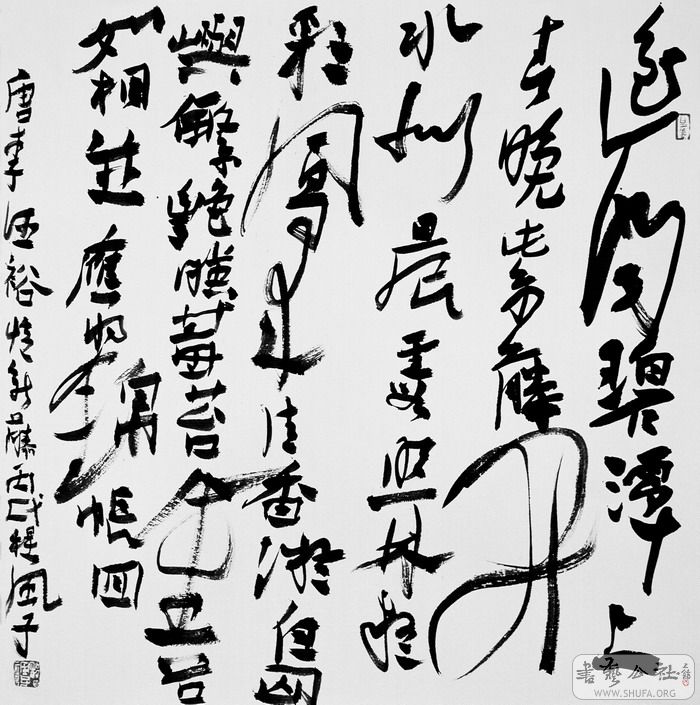 遙聞碧潭上
春晚紫藤開
水似晨霞照林疑
彩鳳來清香凝島
嶼繁艷映莓苔金谷
如相並應將錦帳回
唐李德裕憶新藤丙戌風子
書藝公社
WWW.SHUFA.ORG